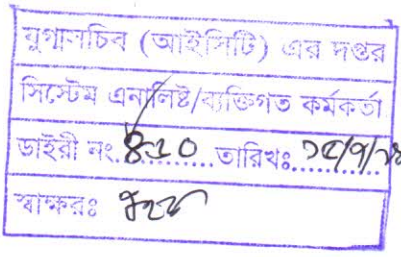 যুগ্মসচিব (আইসিটি) এর দপ্তর
সিস্টেম এনালিষ্ট/ব্যক্তিগত কর্মকর্তা
ডাইরী নং...৪১০...........তারিখঃ.............
স্বাক্ষরঃ